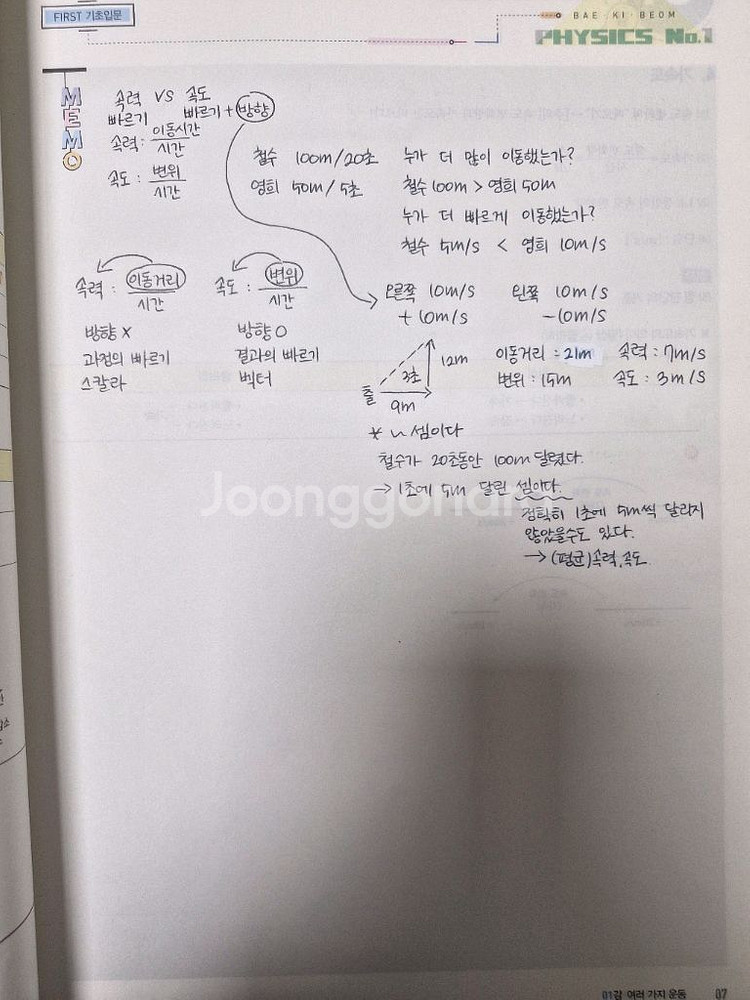 FIRST 기초입문
BAE·KI·BEOM
PHYSICS No.1
MEMO
속력 VS 속도
빠르기 빠르기+방향
속력: 이동시간/시간
속도: 변위/시간
철수 100m/20초
영희 50m/5초
누가 더 많이 이동했는가?
철수 100m > 영희 50m
누가 더 빠르게 이동했는가?
철수 5m/s < 영희 10m/s
속력: 이동거리/시간
방향 X
과정의 빠르기
스칼라
속도: 변위/시간
방향 O
결과의 빠르기
벡터
오른쪽 10m/s 왼쪽 10m/s
+10m/s -10m/s
12m
3초
출
9m
이동거리: 21m 속력: 7m/s
변위: 15m 속도: 3m/s
* ~셈이다
철수가 20초동안 100m 달렸다.
→ 1초에 5m 달린 셈이다.
정확히 1초에 5m씩 달리지
않았을수도 있다.
→ (평균)속력, 속도
Joonggonara
01강 여러 가지 운동 07